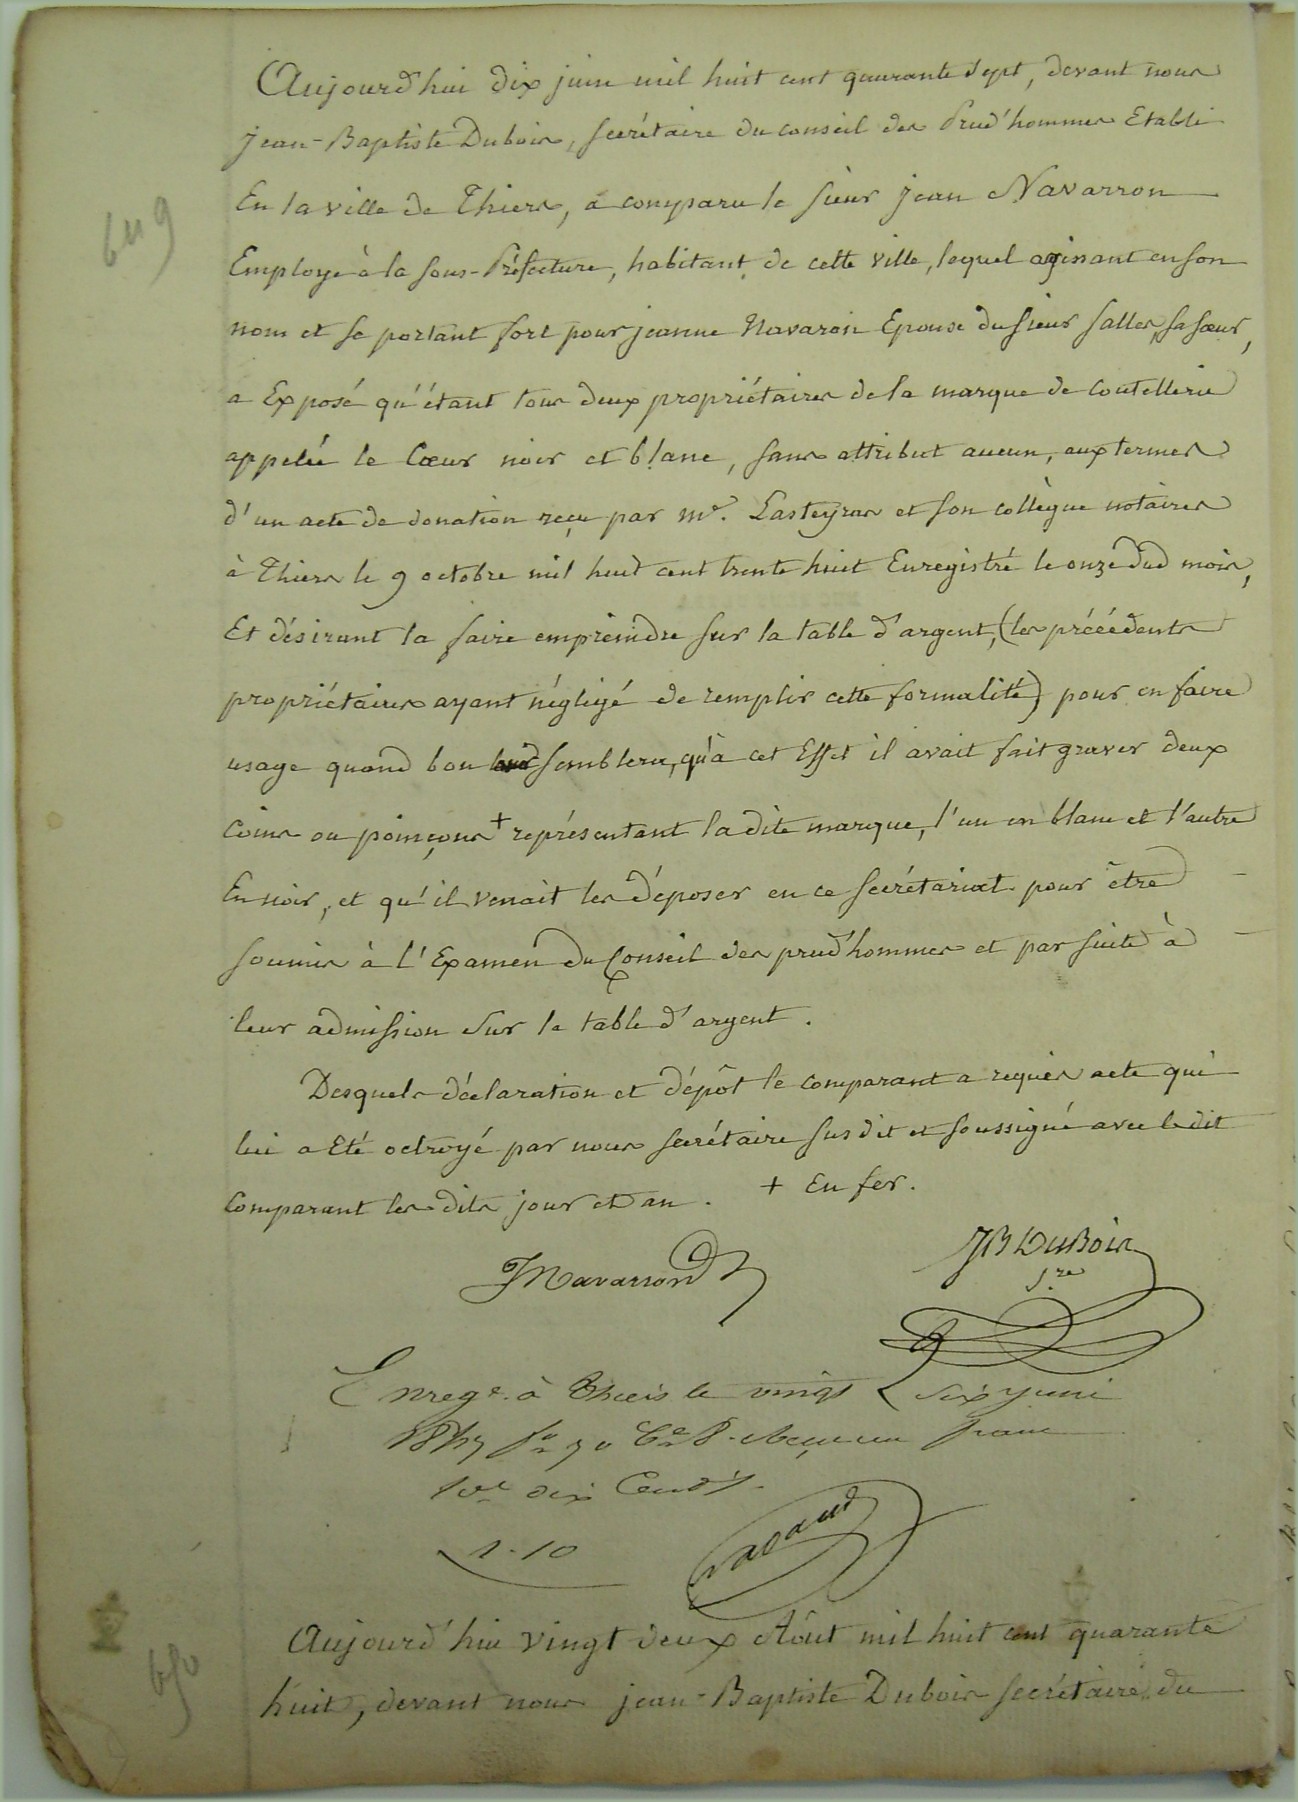 649
Aujourd'hui dix juin mil huit cent quarante sept, devant nous
jean-Baptiste Dubois, secrétaire du conseil des Prud'hommes Etabli
En la ville de Thiers, a comparu le sieur jean Navarron
Employé à la sous-Préfecture, habitant de cette ville, lequel agissant en son
nom et se portant fort pour jeanne Navaron Epouse du sieur Salles, sa sœur,
a Exposé qu'étant tous deux propriétaires de la marque de coutellerie
appelée le Cœur noir et blanc, sans attribut aucun, aux termes
d'un acte de donation reçu par me. Lasteyras et son collègue notaires
à Thiers le 9 octobre mil huit cent trente huit Enregistré le onze dud mois,
Et désirant la faire empreindre sur la table d'argent, (les précédents
propriétaires ayant négligé de remplir cette formalité) pour en faire
usage quand bon semblera, qu'à cet Effet il avait fait graver deux
Coins ou poinçons + représentant la dite marque, l'un en blanc et l'autre
En noir, et qu'il venait les déposer en ce secrétariat pour être
soumis à l'Examen du Conseil des prud'hommes et par suite à
leur admission sur la table d'argent.
Desquels déclaration et dépôt le comparant a requis acte qui
lui a Eté octroyé par nous secrétaire susdit et soussigné avec le dit
Comparant les dits jour et an. + En fer.
JNavarron
JB DuBois
s.re
Enregé. à Thiers le vingt six juin
1847 fo 70 Ce 8. Reçu un franc
10e dix Cent.
1-10
Aujourd'hui vingt deux Août mil huit cent quarante
650
huit, devant nous jean-Baptiste Dubois secrétaire du